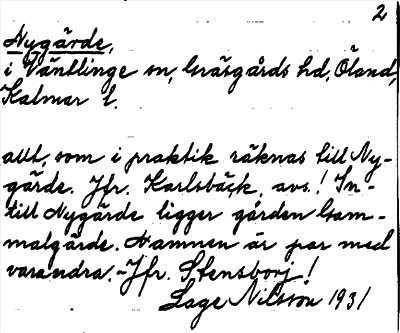 2
Nygärde,
i Ventlinge sn, Gräsgårds hd, Öland,
Kalmar l.
allt, som i praktik räknas till Ny-
gärde. Jfr. Karlsbäck, avs.! In-
till Nygärde ligger gården Gam-
malgärde. Namnen är par med
varandra. - Jfr. Stensborj!
Lage Nilsson 1931